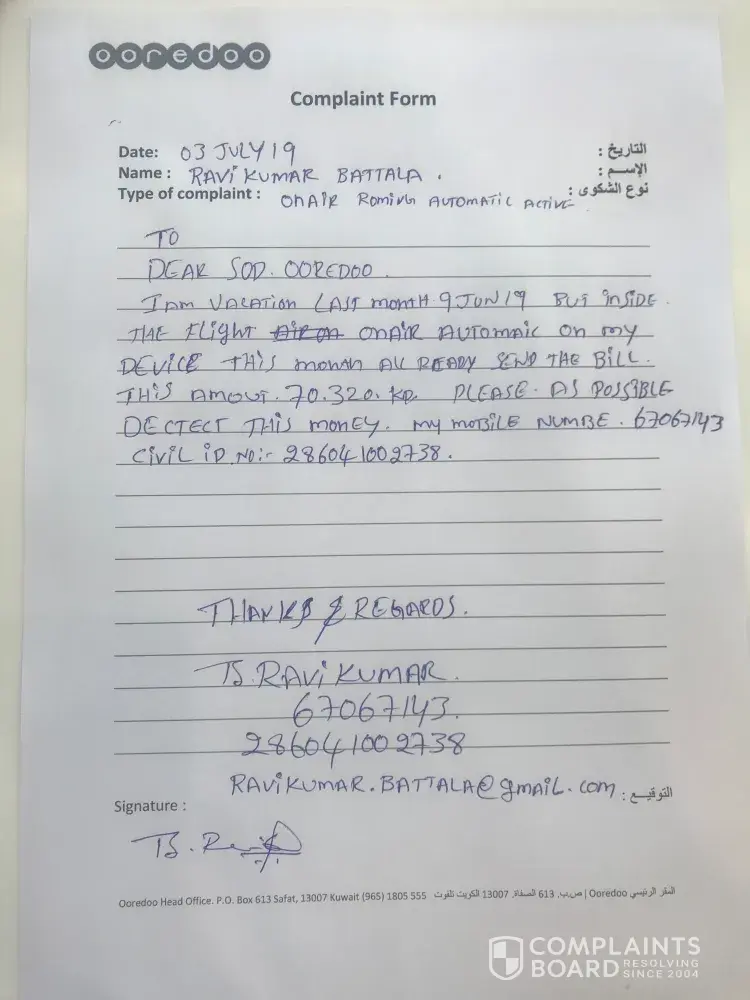 ooredoo
Complaint Form
Date: 03 JULY 19 التاريخ :
Name : RAVI KUMAR BATTALA . الإسم :
Type of complaint : ONAIR ROMING AUTOMATIC ACTIVE نوع الشكوى :
TO
DEAR SOD. OOREDOO
I AM VACATION LAST MONTH 9 JUN 19 BUT INSIDE.
THE FLIGHT ONAIR AUTOMAIC ON MY
DEVICE THIS MONTH ALL READY SEND THE BILL.
THIS AMOUT. 70.320. KD. PLEASE. AS POSSIBLE
DECTECT THIS MONEY. MY MOBILE NUMBE. 67067143
CIVIL ID NO:- 286041002738.
THANKS & REGARDS.
B. RAVI KUMAR.
67067143.
286041002738
RAVIKUMAR.BATTALA@gmail.com التوقيع :
Signature :
Ooredoo Head Office. P.O. Box 613 Safat, 13007 Kuwait (965) 1805 555 المقر الرئيسي Ooredoo | ص.ب. 613 الصفاة. 13007 الكويت تلفوت
COMPLAINTS
BOARD RESOLVING SINCE 2004